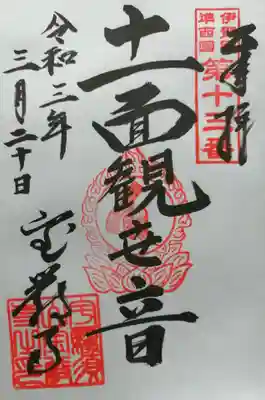 奉拝
伊賀
準西国
第十三番
十一面観世音
令和三年
三月二十日
宝厳寺